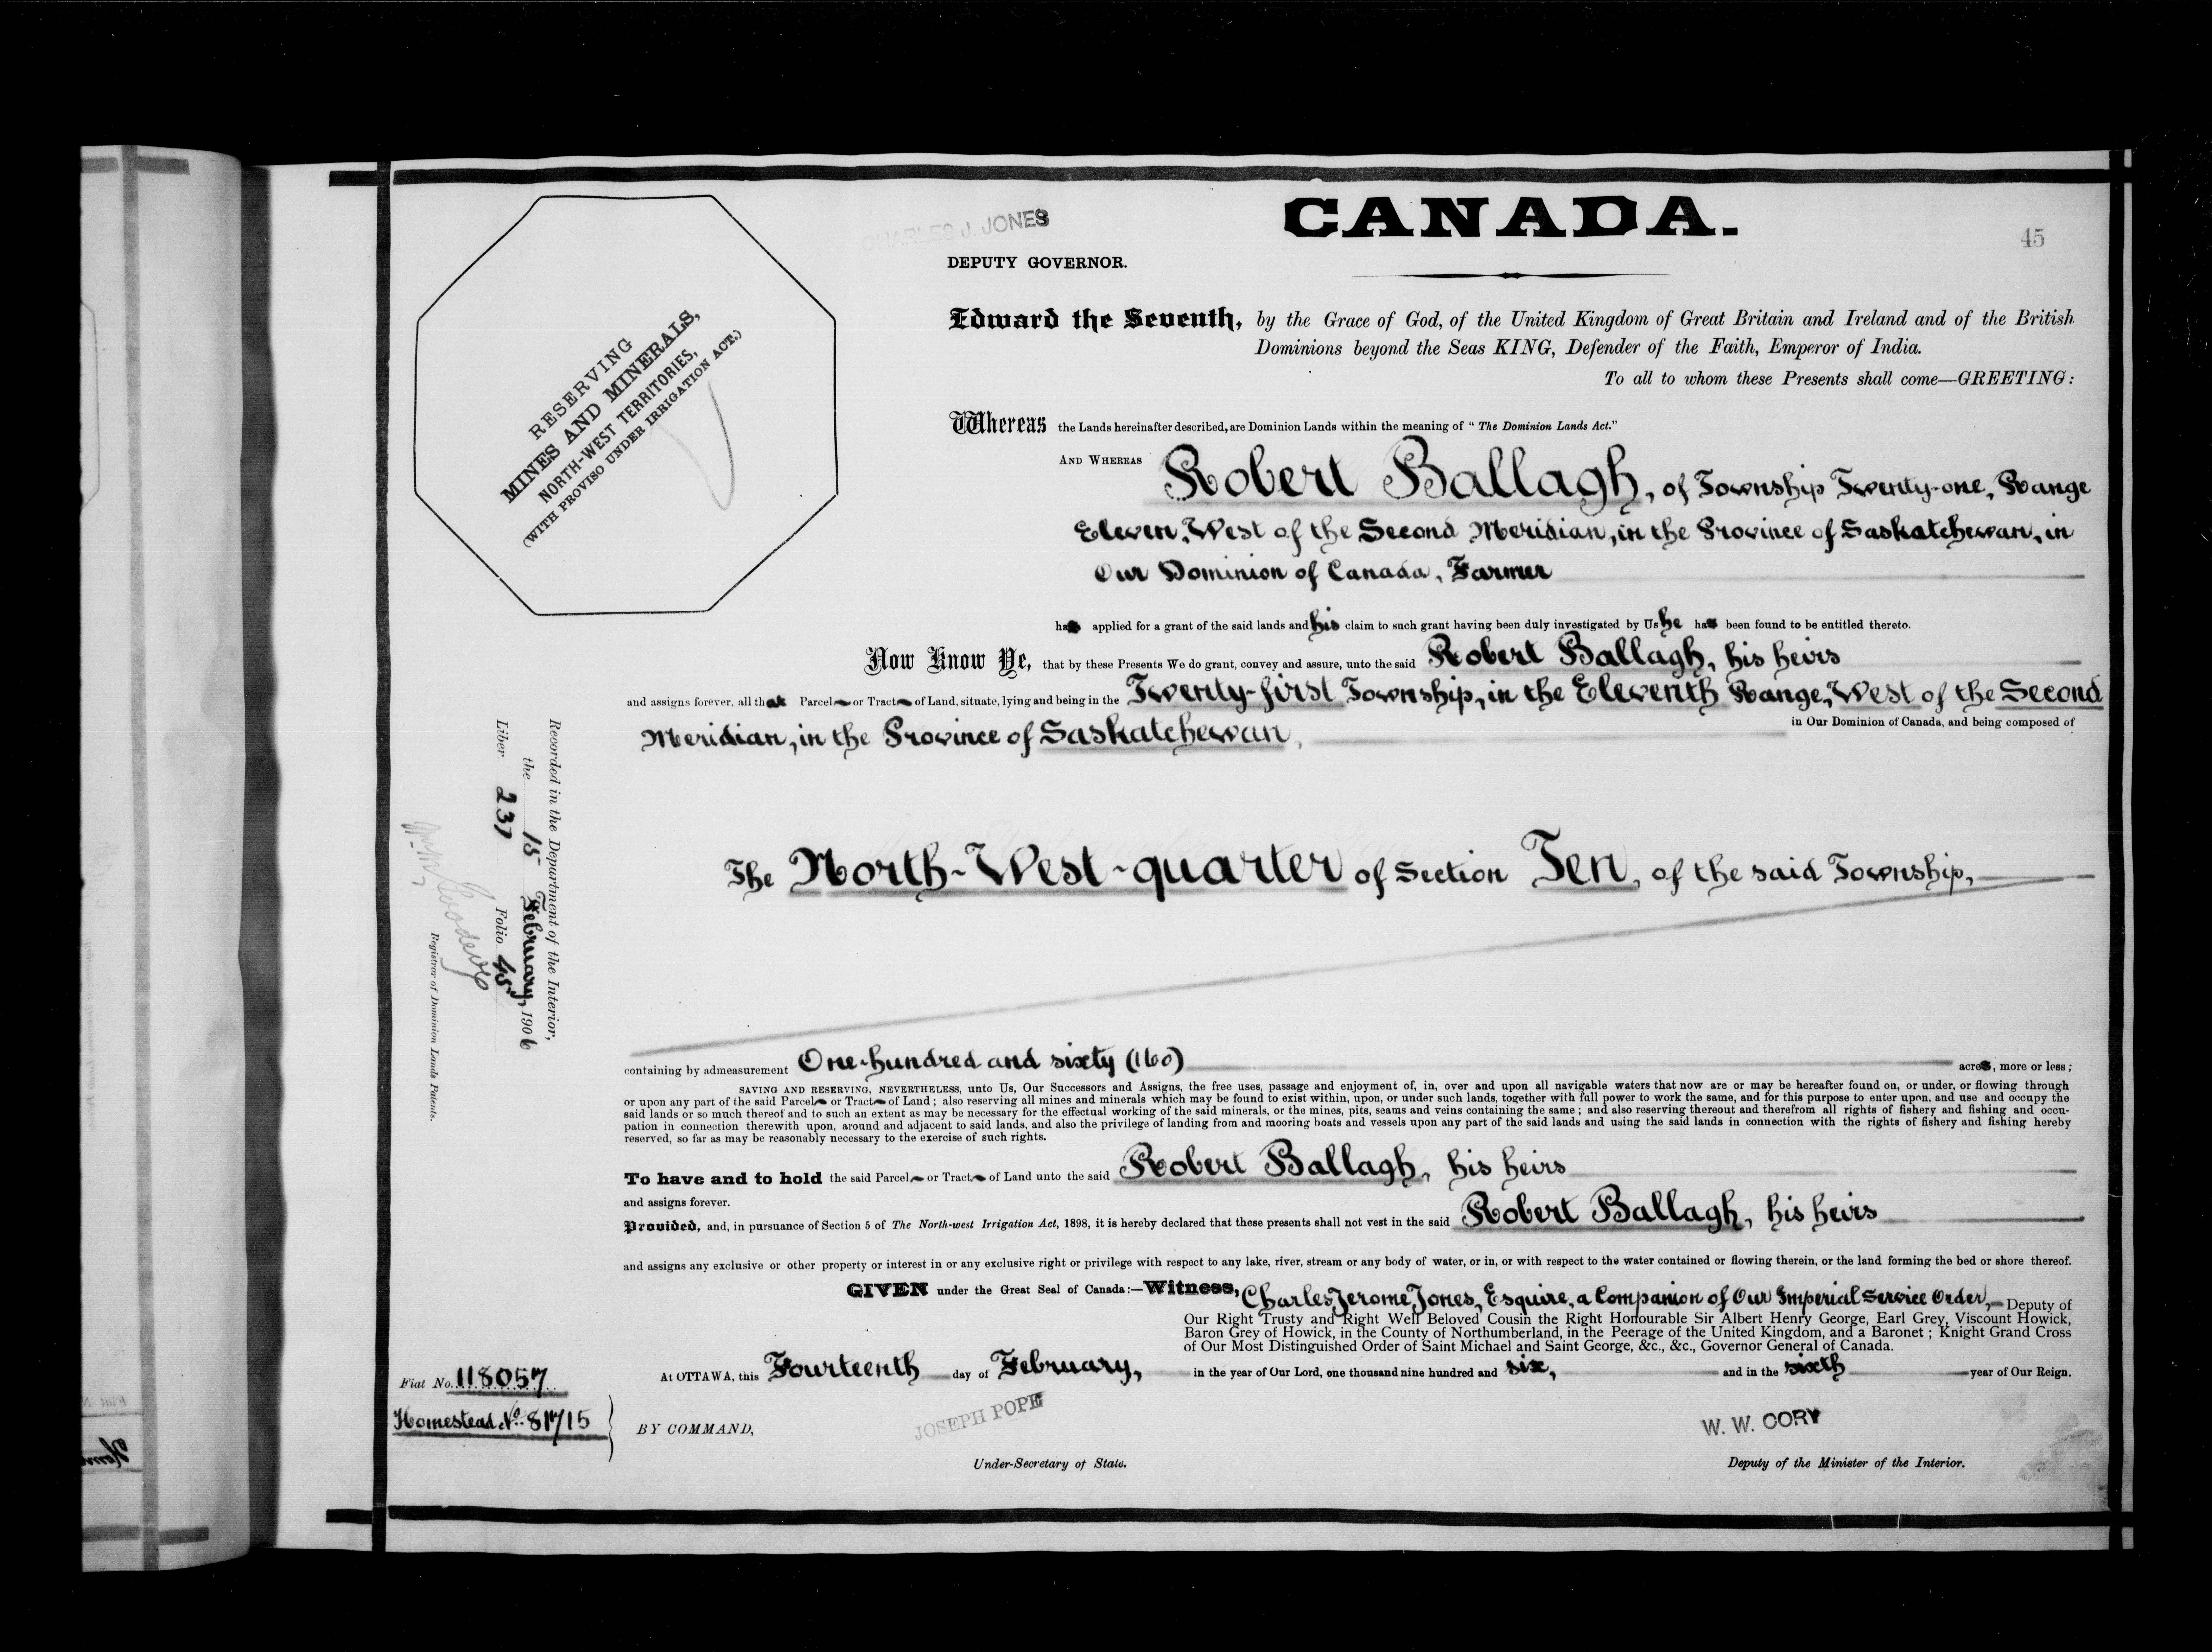 CHARLES J. JONES
CANADA.
45
DEPUTY GOVERNOR.
RESERVING
MINES AND MINERALS,
NORTH-WEST TERRITORIES,
(WITH PROVISO UNDER IRRIGATION ACT.)
Edward the Seventh, by the Grace of God, of the United Kingdom of Great Britain and Ireland and of the British
Dominions beyond the Seas KING, Defender of the Faith, Emperor of India.
To all to whom these Presents shall come—GREETING:
Whereas the Lands hereinafter described, are Dominion Lands within the meaning of "The Dominion Lands Act."
AND WHEREAS Robert Ballagh, of Township Twenty-one, Range
Eleven, West of the Second Meridian, in the Province of Saskatchewan, in
Our Dominion of Canada, Farmer
has applied for a grant of the said lands and his claim to such grant having been duly investigated by Us he has been found to be entitled thereto.
Now Know Ye, that by these Presents We do grant, convey and assure, unto the said Robert Ballagh, his heirs
and assigns forever, all that Parcel or Tract of Land, situate, lying and being in the Twenty-first Township, in the Eleventh Range, West of the Second
Meridian, in the Province of Saskatchewan, in Our Dominion of Canada, and being composed of
The North-West-quarter of Section Ten, of the said Township,
Recorded in the Department of the Interior,
the 15 February, 1906
Liber 237 Folio 45
Registrar of Dominion Lands Patents.
containing by admeasurement One-hundred and sixty (160) acres, more or less;
SAVING AND RESERVING, NEVERTHELESS, unto Us, Our Successors and Assigns, the free uses, passage and enjoyment of, in, over and upon all navigable waters that now are or may be hereafter found on, or under, or flowing through
or upon any part of the said Parcel or Tract of Land; also reserving all mines and minerals which may be found to exist within, upon, or under such lands, together with full power to work the same, and for this purpose to enter upon, and use and occupy the
said lands or so much thereof and to such an extent as may be necessary for the effectual working of the said minerals, or the mines, pits, seams and veins containing the same; and also reserving thereout and therefrom all rights of fishery and fishing and occu-
pation in connection therewith upon, around and adjacent to said lands, and also the privilege of landing from and mooring boats and vessels upon any part of the said lands and using the said lands in connection with the rights of fishery and fishing hereby
reserved, so far as may be reasonably necessary to the exercise of such rights.
To have and to hold the said Parcel or Tract of Land unto the said Robert Ballagh, his heirs
and assigns forever.
Provided, and, in pursuance of Section 5 of The North-west Irrigation Act, 1898, it is hereby declared that these presents shall not vest in the said Robert Ballagh, his heirs
and assigns any exclusive or other property or interest in or any exclusive right or privilege with respect to any lake, river, stream or any body of water, or in, or with respect to the water contained or flowing therein, or the land forming the bed or shore thereof.
GIVEN under the Great Seal of Canada:—Witness, Charles Jerome Jones, Esquire, a Companion of Our Imperial Service Order, Deputy of
Our Right Trusty and Right Well Beloved Cousin the Right Honourable Sir Albert Henry George, Earl Grey, Viscount Howick,
Baron Grey of Howick, in the County of Northumberland, in the Peerage of the United Kingdom, and a Baronet; Knight Grand Cross
of Our Most Distinguished Order of Saint Michael and Saint George, &c., &c., Governor General of Canada.
At OTTAWA, this Fourteenth day of February, in the year of Our Lord, one thousand nine hundred and six, and in the sixth year of Our Reign.
Fiat No. 118057
Homestead No. 81715
BY COMMAND,
JOSEPH POPE
Under-Secretary of State.
W. W. CORY
Deputy of the Minister of the Interior.